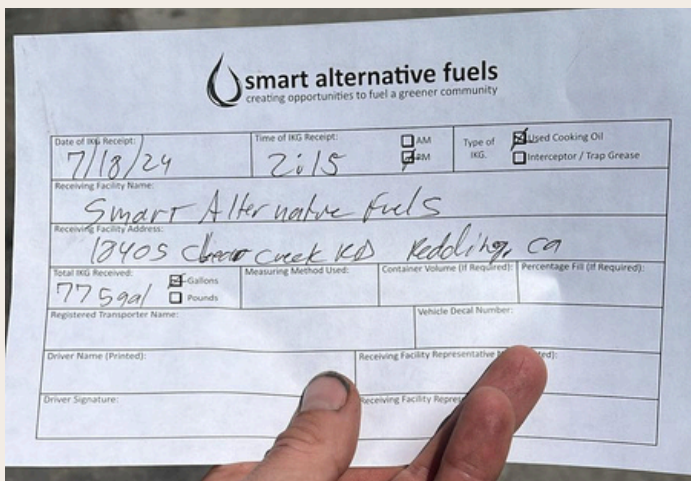 smart alternative fuels
creating opportunities to fuel a greener community
Date of IKG Receipt: Time of IKG Receipt: AM Type of IKG. Used Cooking Oil
7/18/24 2:15 PM Interceptor / Trap Grease
Receiving Facility Name:
Smart Alternative Fuels
Receiving Facility Address:
18405 Clear Creek RD Redding, ca
Total IKG Received: Gallons Measuring Method Used: Container Volume (If Required): Percentage Fill (If Required):
775gal Pounds
Registered Transporter Name: Vehicle Decal Number:
Driver Name (Printed): Receiving Facility Representative
Driver Signature: Receiving Facility